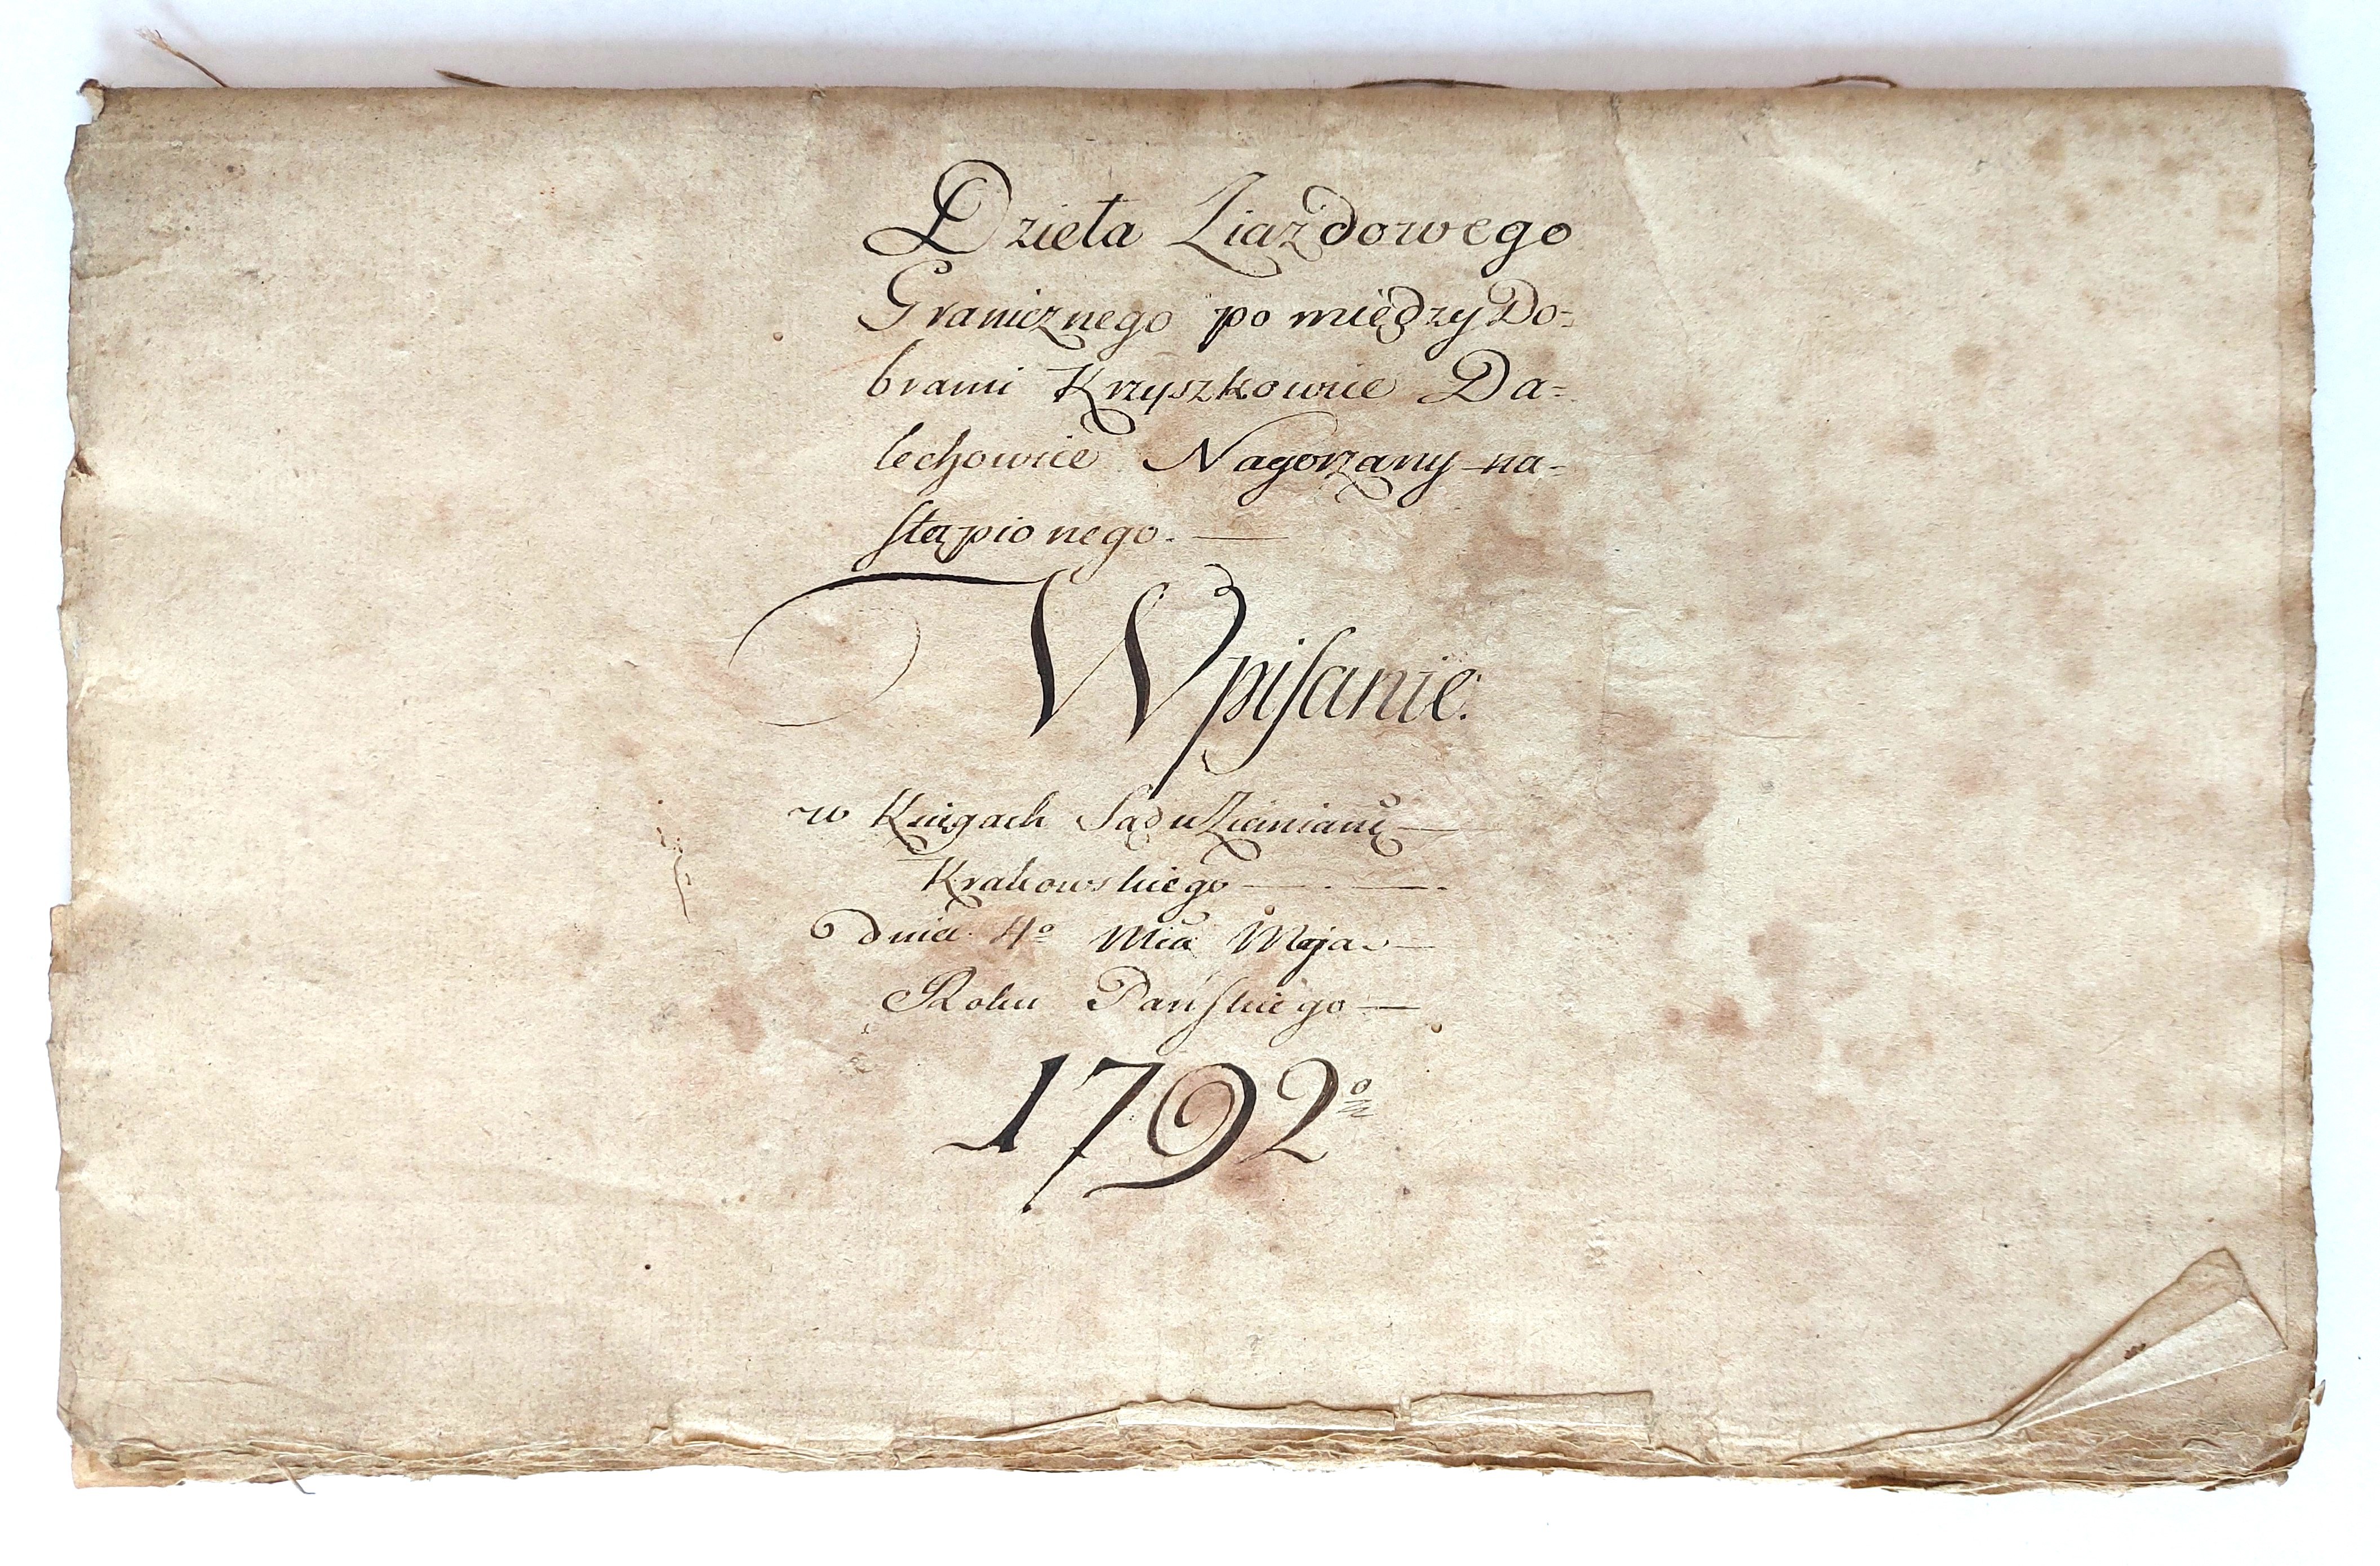 Dzieła Ziazdowego
Granicznego po między Do=
brami Krzyszkowice Da=
lechowice Nagorzany na=
stąpionego. —
Wpisanie.
w Księgach Sądu Ziemiańs̃ —
Krakowskiego — . —.
dnia 4º Mc̃a Maja. —
Roku Pańskiego —
1792º